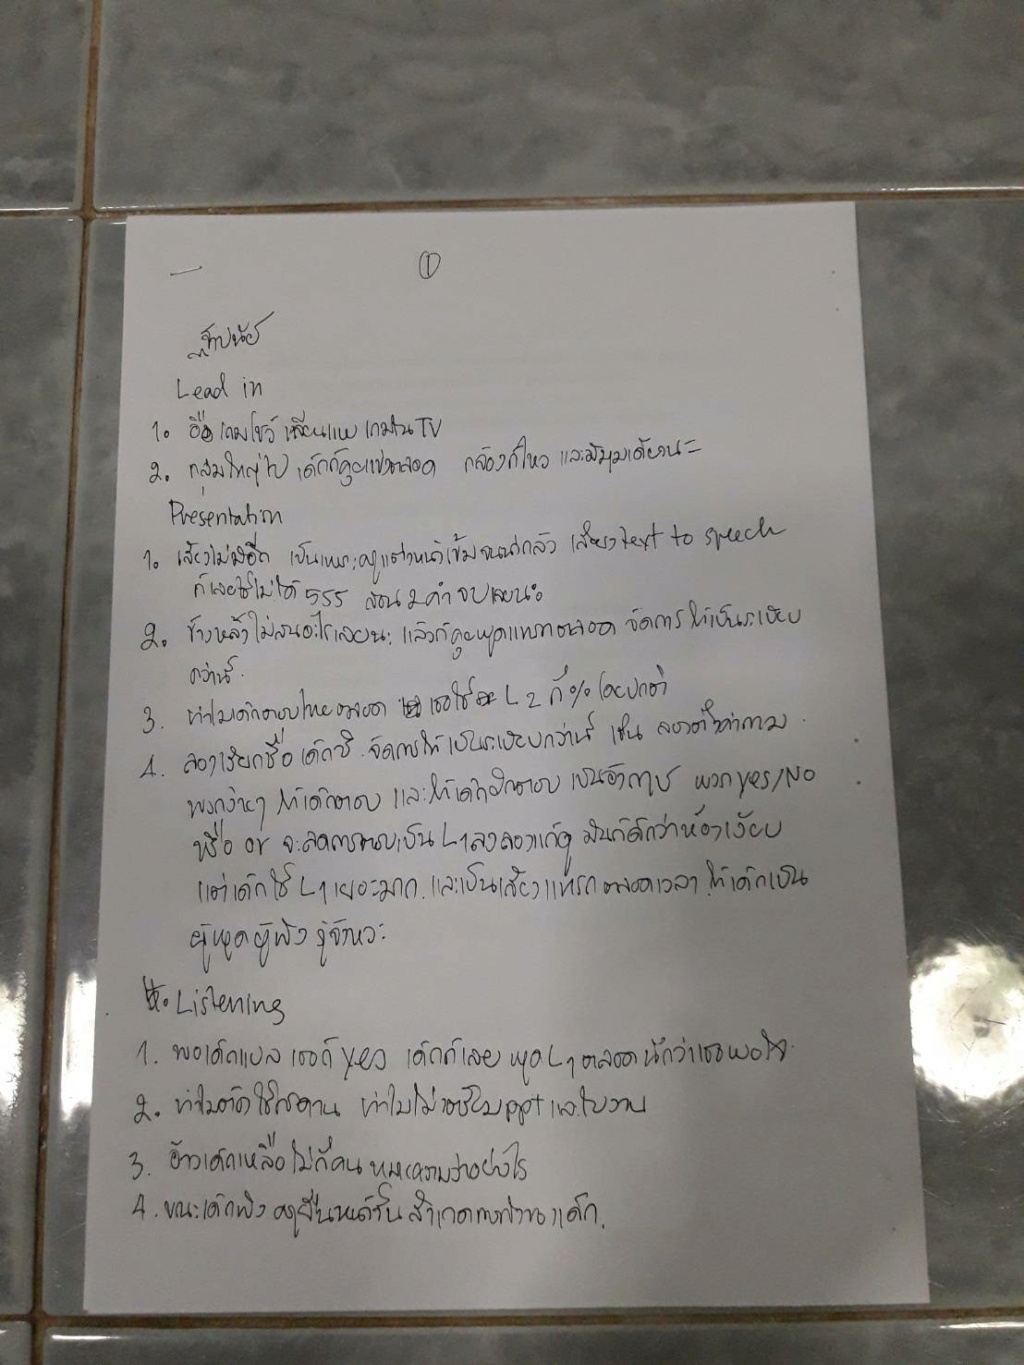 ①
ฐาปนีย์
Lead in
1. ชื่อเกมโชว์ เลียนแบบ เกมใน TV
2. กลุ่มใหญ่ไป เด็กก็คุยแข่งตลอด กล้องก็ไหว และมีมุมเดียวนะ
Presentation
1. เสียงไม่ฮึด เป็นเพราะครูแต่งหน้าเข้มจนน่ากลัว เสียง text to speech
ก็เลยใช้ไม่ได้ 555 สอน 2 คำ จบเลยนะ
2. ข้างหลังไม่สนอะไรเลยนะ แล้วก็คุยพูดแทรกตลอด จัดการให้เป็นระเบียบ
กว่านี้.
3. ทำไมเด็กตอบไทยตลอด เธอใช้ L2 กี่ % โดยปกติ
4. ลองเรียกชื่อ เด็กซิ จัดการให้เป็นระเบียบกว่านี้ เช่น ลองตั้งคำถาม
พวกง่ายๆ ให้เด็กตอบ และให้เด็กฝึกตอบ เป็นอังกฤษ พวก yes/NO
หรือ or จะลดการตอบเป็น L1 ลง ลองแก้ดู มันก็ดีกว่าห้องเงียบ
แต่เด็กใช้ L1 เยอะมาก และเป็นเสียงแทรกตลอดเวลา ให้เด็กเป็น
ผู้พูดผู้ฟัง รู้จังหวะ
Listening
1. พอเด็กแปล เธอก็ yes เด็กก็เลย พูด L1 ตลอด นึกว่าเธอพอใจ.
2. ทำไมตัดใช้กระดาน ทำไมไม่ ppt และใบงาน
3. อ้าวเด็กเหลือไม่กี่คน หมายความว่าอย่างไร
4. ขณะเด็กฟัง ครูยืนหน้าชั้น สังเกตการทำงานเด็ก.